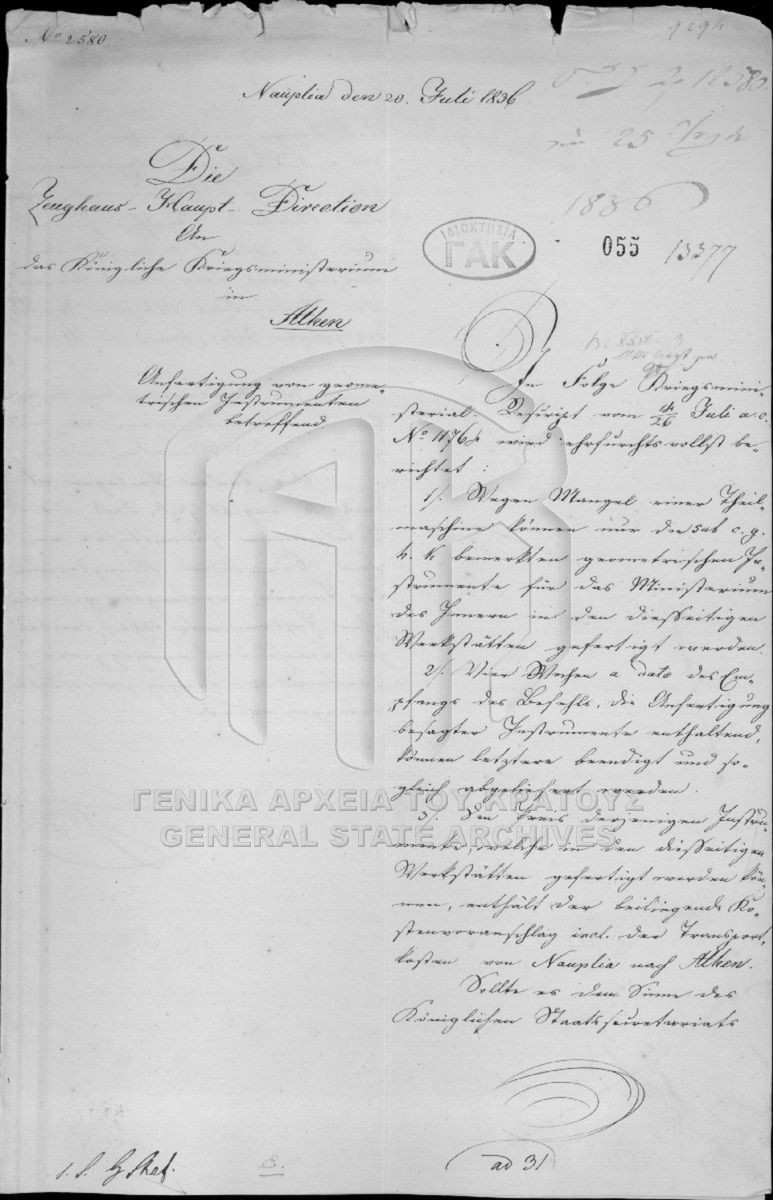 No 2580
9294
Nauplia den 20. Juli 1836
25
1836
Die
Zeughaus-Haupt-Direction
An
das Königliche Kriegsministerium
in
Athen
ΙΔΙΟΚΤΗΣΙΑ
ΓΑΚ
055
13377
Anfertigung von geome-
trischen Instrumenten
betreffend
In Folge Kriegsmini-
sterial-Rescript vom Juli a. c.
No wird ehrfurchtsvollst be-
richtet:
1/. Wegen Mangel einer Theil-
maschine können nur die sub c. g.
h. k. bemerkten geometrischen In-
strumente für das Ministerium
des Innern in den diesseitigen
Werkstätten gefertigt werden.
2/. Vier Wochen a dato des Em-
pfangs des Befehls, die Anfertigung
besagter Instrumente enthaltend,
können letztere beendigt und so-
gleich abgeliefert werden.
3/. Den Preis derjenigen Instru-
mente, welche in den diesseitigen
Werkstätten gefertigt werden kön-
nen, enthält der beiliegende Ko-
stenvoranschlag incl. der Transport-
kosten von Nauplia nach Athen.
Sollte es dem Sinne des
Königlichen Staatssecretariats
ΓΕΝΙΚΑ ΑΡΧΕΙΑ ΤΟΥ ΚΡΑΤΟΥΣ
GENERAL STATE ARCHIVES
ad 31